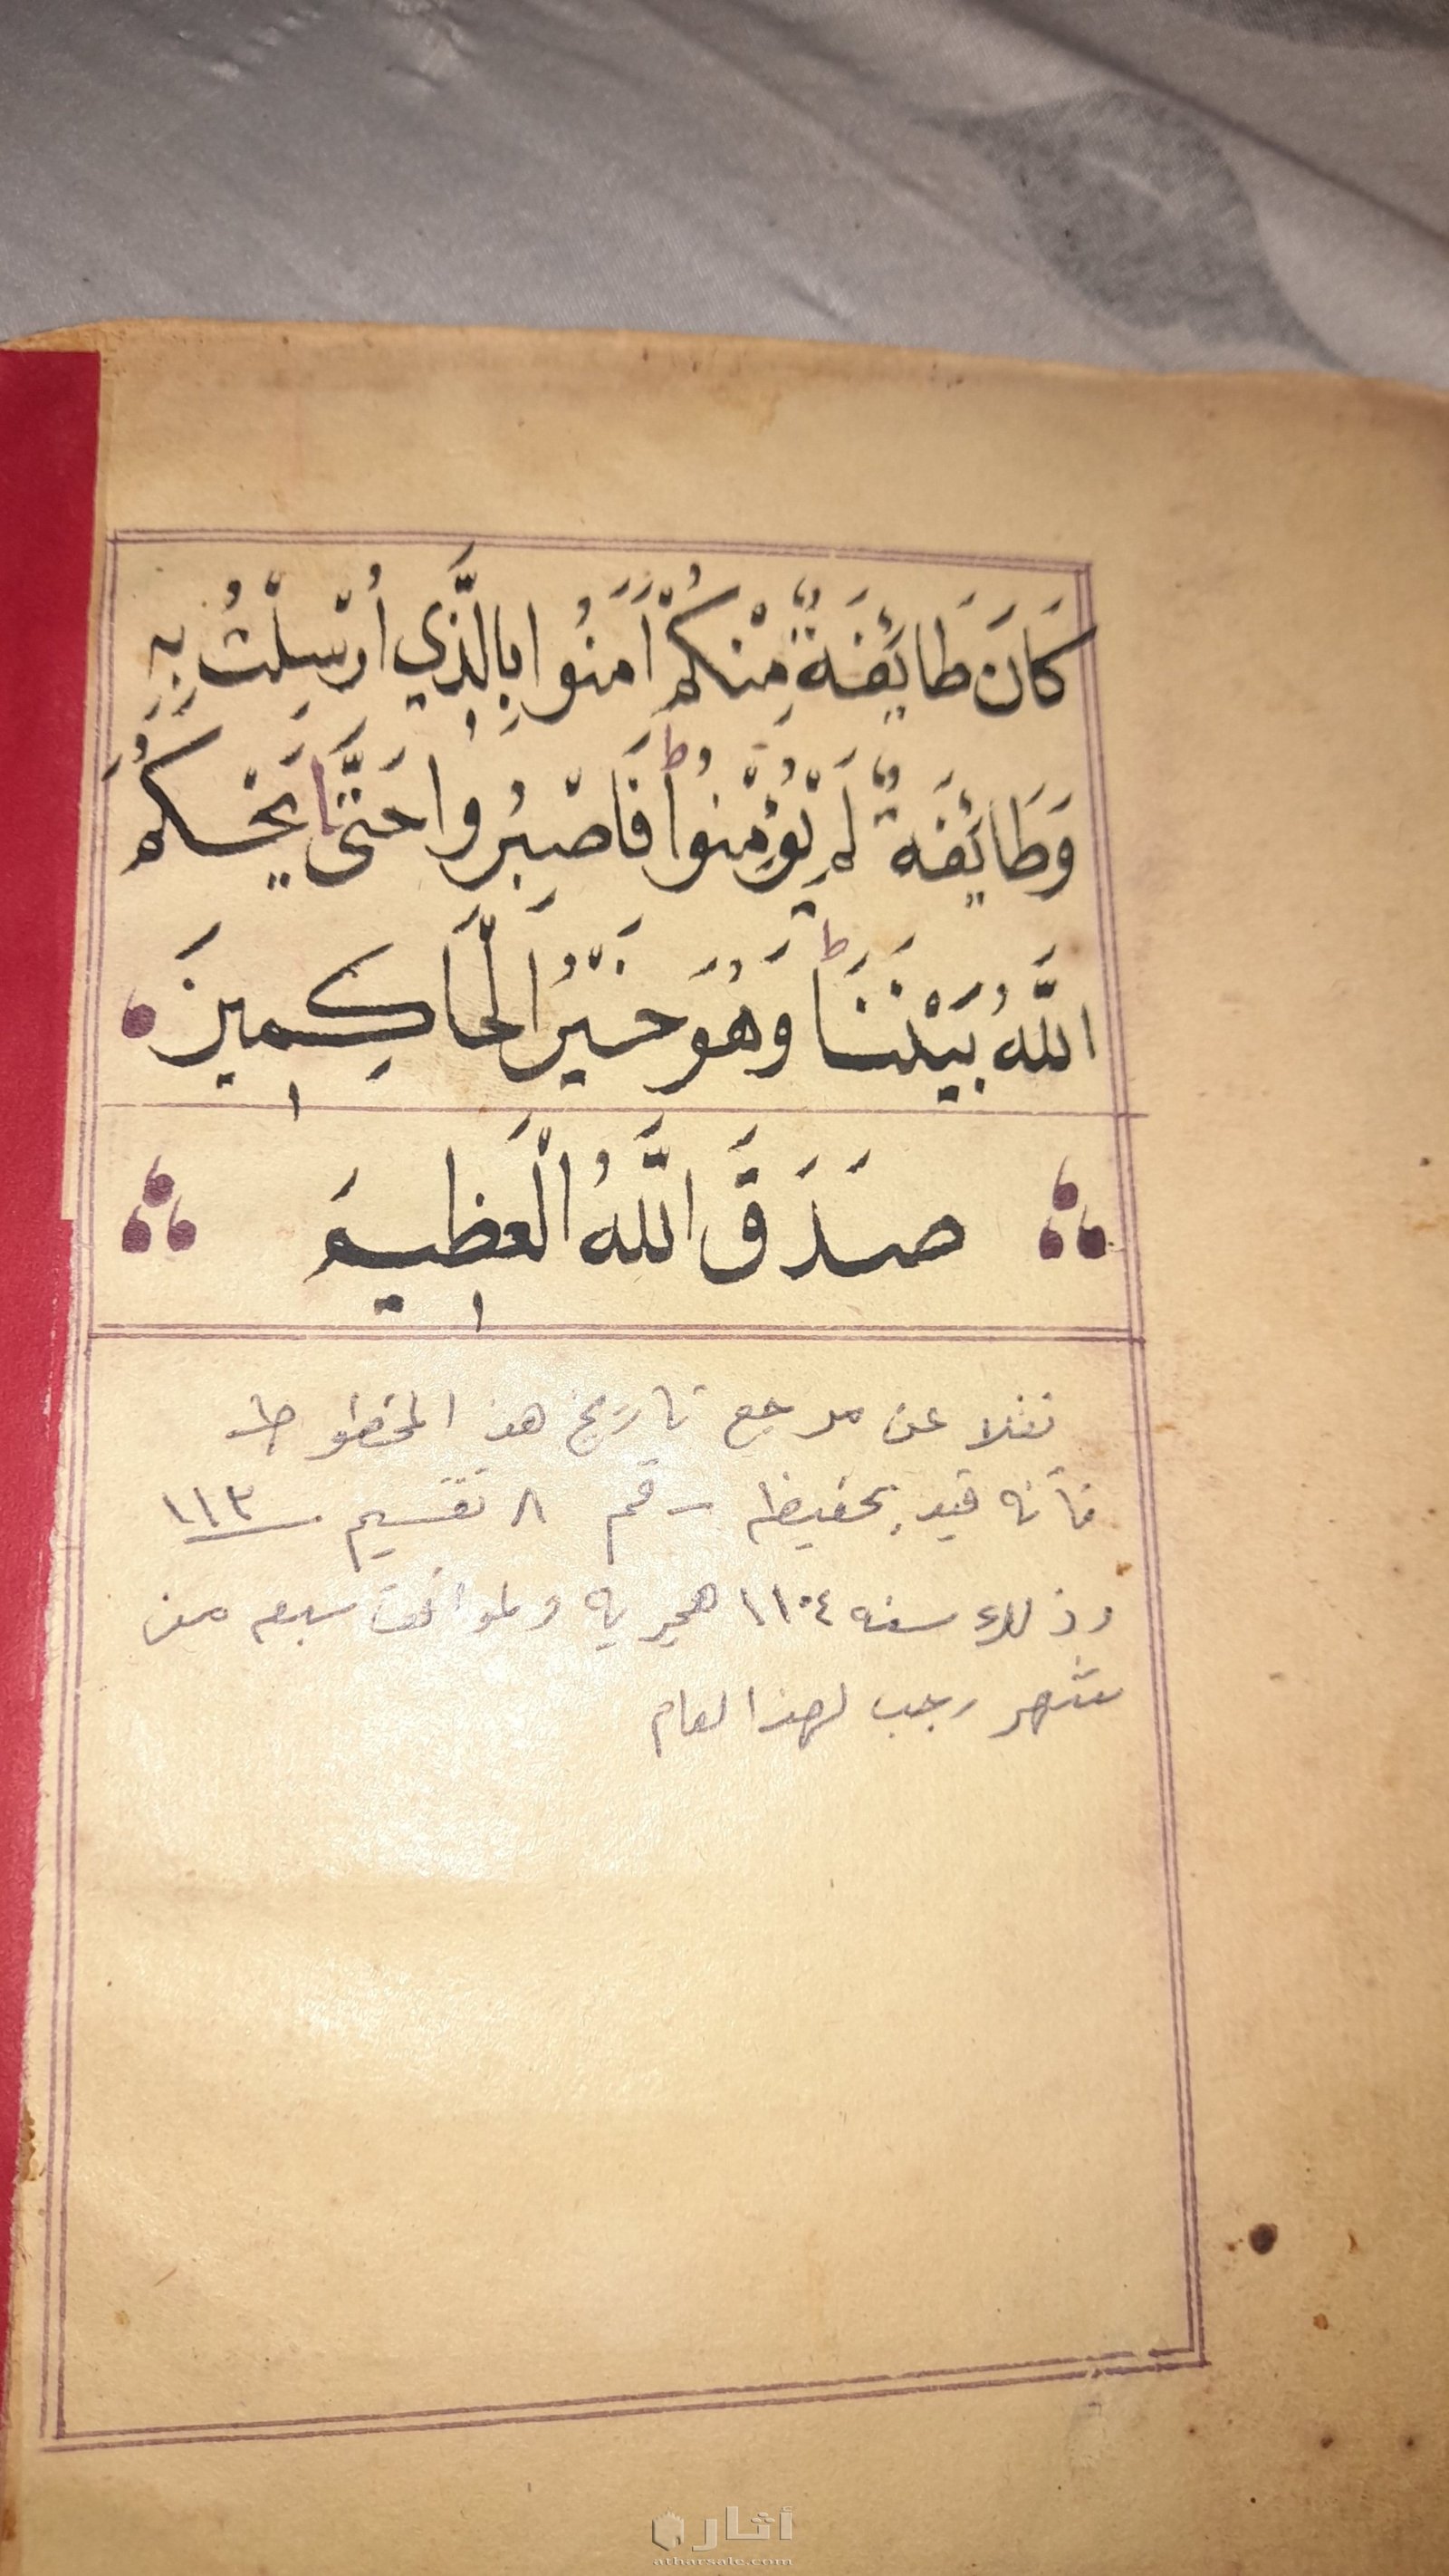 كَانَ طَائِفَةٌ مِّنْكُمْ آمَنُوا بِالَّذِي أُرْسِلْتُ بِهِ
وَطَائِفَةٌ لَمْ يُؤْمِنُوا ط فَاصْبِرُوا حَتَّى يَحْكُمَ
اللَّهُ بَيْنَنَا ط وَهُوَ خَيْرُ الْحَاكِمِينَ
صَدَقَ اللَّهُ الْعَظِيمَ
نقلا عن مرجع تاريخ هذ المخطوط
فأنه قيد بحفيظه رقم ٨ تقسيم ١١٣
وذلك سنه ١١٠٤ هجريه والموافق سبعه من
شهر رجب لهذا العام
أثار
atharsale.com